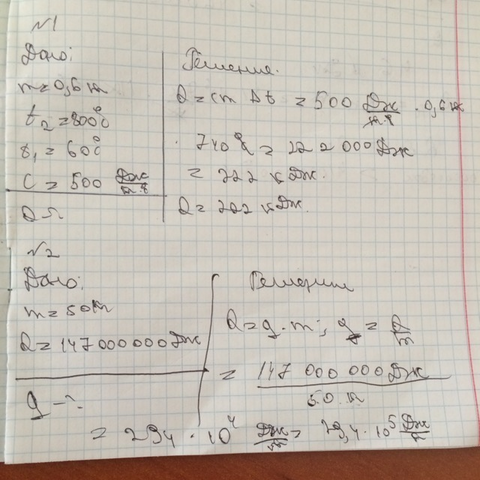 №1
Дано:
m=0,6 кг
t₂=800°C
t₁=60°C
C=500 Дж/кг·°C
Q-?
Решение:
Q=cm Δt = 500 Дж/кг·°C · 0,6 кг
· 740°C = 222 000 Дж
= 222 кДж.
Q=222 кДж.
№2
Дано:
m=50 кг
Q=147 000 000 Дж
q-?
Решение
Q=q·m; q = Q/m
= 147 000 000 Дж / 50 кг
= 294·10⁴ Дж/кг = 29,4·10⁵ Дж/кг